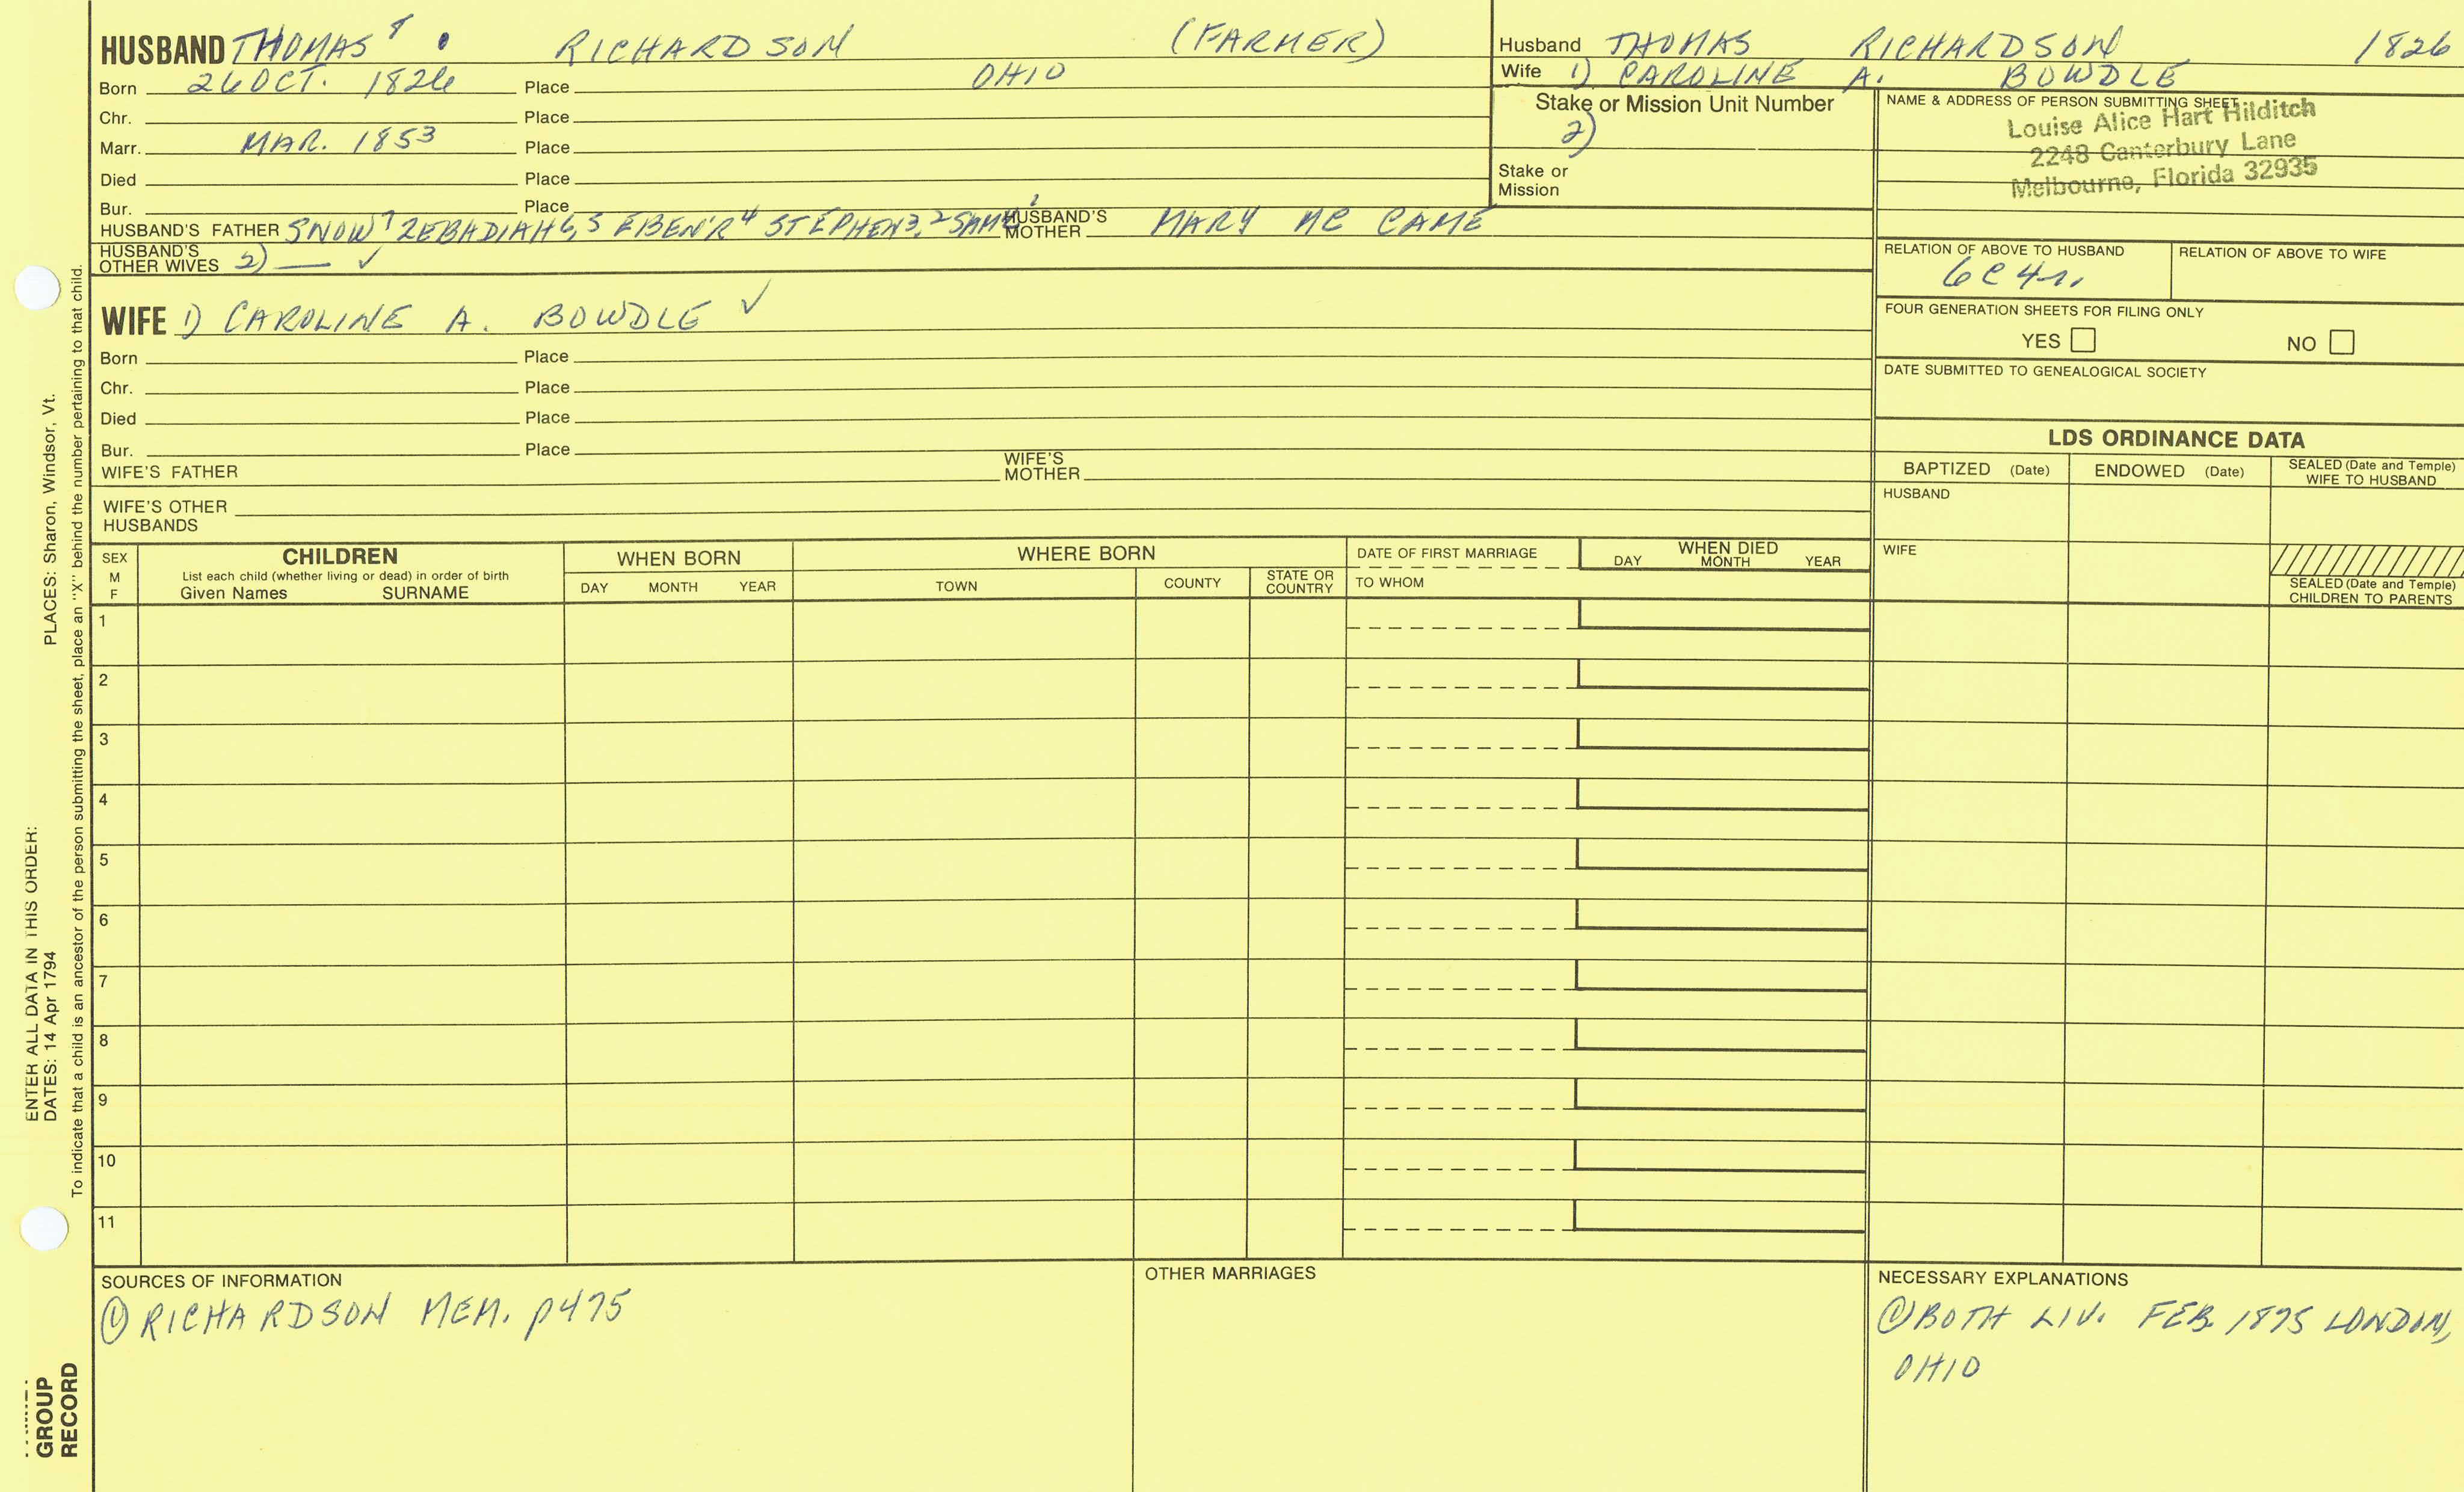 HUSBAND THOMAS 8 RICHARDSON (FARMER)
Born 26 OCT. 1826 Place OHIO
Chr. Place
Marr. MAR. 1853 Place
Died Place
Bur. Place
HUSBAND'S FATHER SNOW 7 ZEBADIAH 6,5 EBEN'R 4 STEPHEN 3,2 SAM'L 1 HUSBAND'S MOTHER MARY MC CAME
HUSBAND'S OTHER WIVES 2) — ✓
WIFE 1) CAROLINE A. BOWDLE ✓
Born Place
Chr. Place
Died Place
Bur. Place
WIFE'S FATHER WIFE'S MOTHER
WIFE'S OTHER HUSBANDS
Husband THOMAS RICHARDSON 1826
Wife 1) CAROLINE A. BOWDLE
Stake or Mission Unit Number
2)
Stake or Mission
NAME & ADDRESS OF PERSON SUBMITTING SHEET
Louise Alice Hart Hilditch
2248 Canterbury Lane
Melbourne, Florida 32935
RELATION OF ABOVE TO HUSBAND RELATION OF ABOVE TO WIFE
6C4r.
FOUR GENERATION SHEETS FOR FILING ONLY
YES NO
DATE SUBMITTED TO GENEALOGICAL SOCIETY
LDS ORDINANCE DATA
BAPTIZED (Date) ENDOWED (Date) SEALED (Date and Temple) WIFE TO HUSBAND
HUSBAND
WIFE
SEALED (Date and Temple) CHILDREN TO PARENTS
SEX M F
CHILDREN
List each child (whether living or dead) in order of birth
Given Names SURNAME
WHEN BORN
DAY MONTH YEAR
WHERE BORN
TOWN COUNTY STATE OR COUNTRY
DATE OF FIRST MARRIAGE
TO WHOM
WHEN DIED
DAY MONTH YEAR
1
2
3
4
5
6
7
8
9
10
11
SOURCES OF INFORMATION
① RICHARDSON MEM. p475
OTHER MARRIAGES
NECESSARY EXPLANATIONS
① BOTH LIV. FEB. 1875 LONDON,
OHIO
ENTER ALL DATA IN THIS ORDER:
DATES: 14 Apr 1794 PLACES: Sharon, Windsor, Vt.
To indicate that a child is an ancestor of the person submitting the sheet, place an "X" behind the number pertaining to that child.
GROUP
RECORD